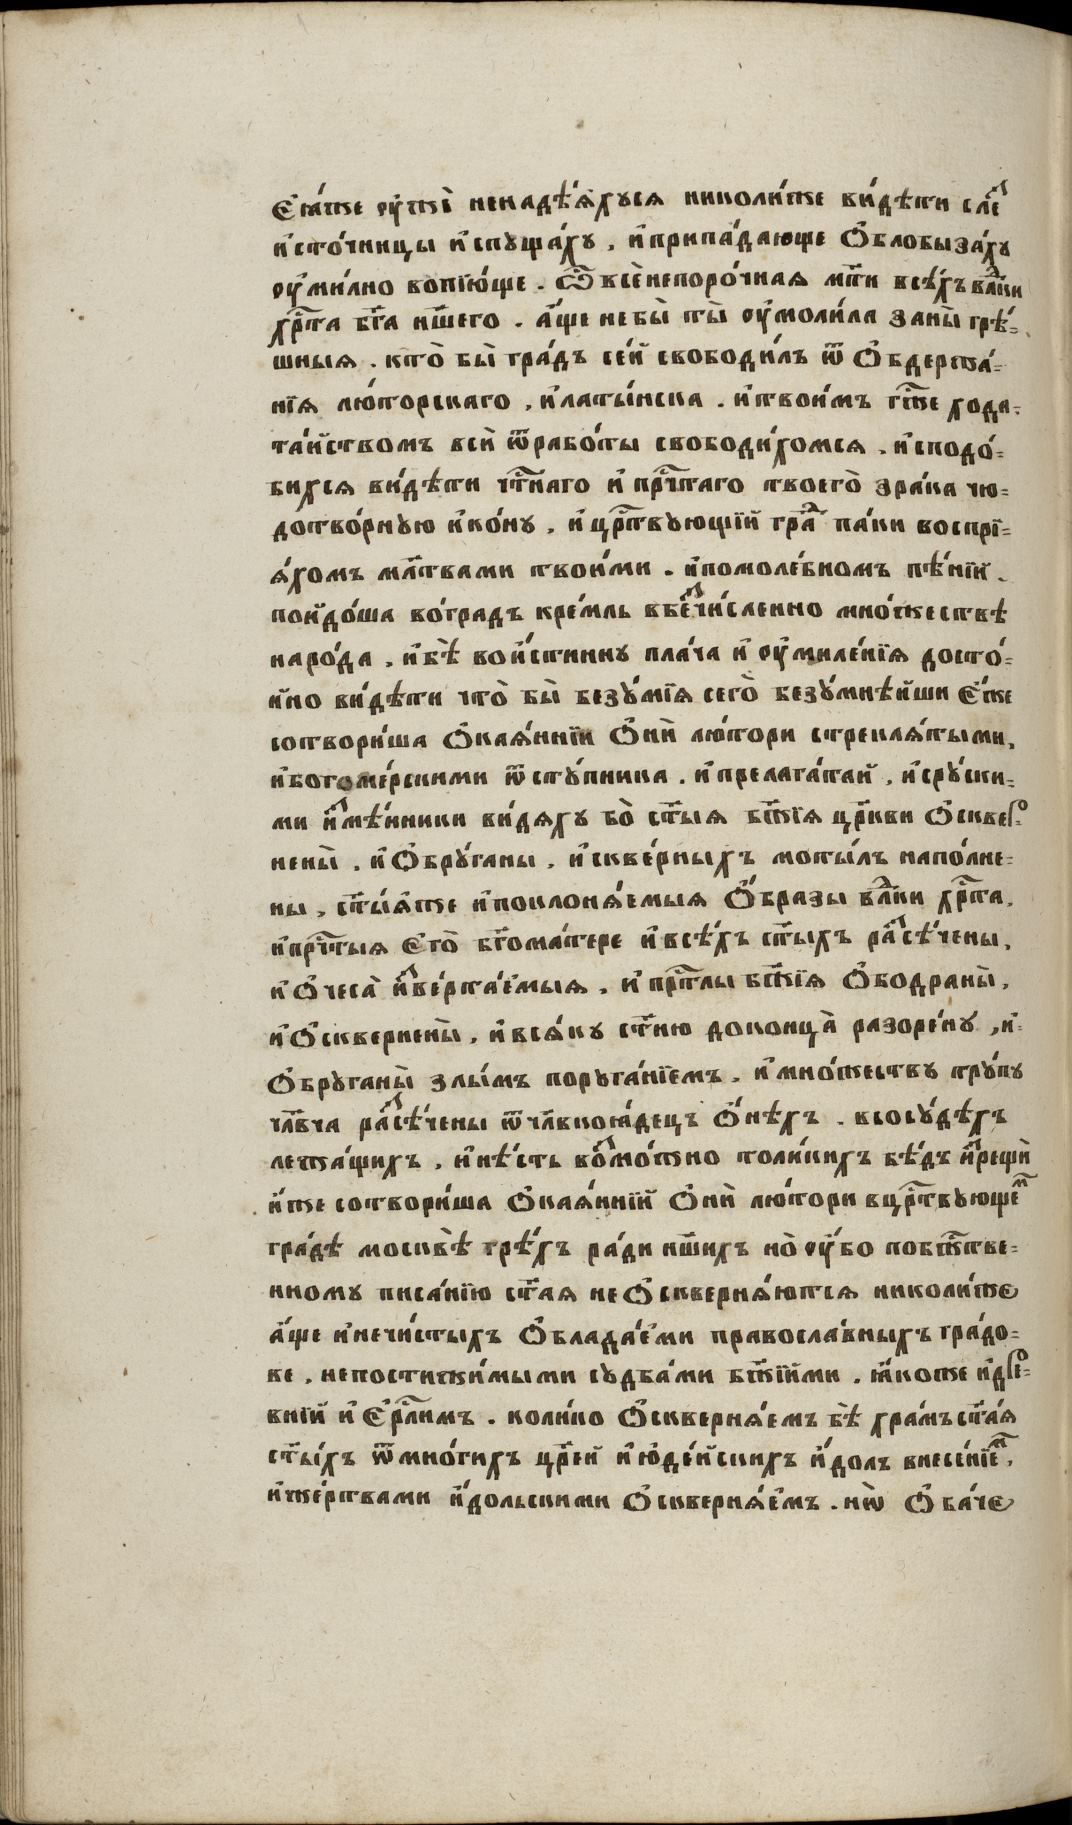 Є҆ѧ́же оу҆жѐ ненадѣ́ѧхусѧ николи́же ви́дѣти сле́з
и҆сто́чницы и҆спуща́ху, и҆припа́дающе Ѻ҆блобыза́ху
оу҆ми́лно вопїю́ще. Ѽ всѐнепоро́чнаѧ мт҃и всѣ́хъ влдⷣки
хрⷭ҇та бг҃а нш҃его. а҆́ще небы̀ ты̀ оу҆моли́ла заны̀ грѣ́-
шныѧ. кто̀ бы̀ гра́дъ се́й свободи́лъ ѿ Ѻ҆бдержа́-
нїѧ лю́торскаго, и҆латы́нска. и҆твои́мъ гжⷭ҇е хода-
та́йствомъ всѝ ѿрабо́ты свободи́хомсѧ. и҆сподо́-
бихсѧ ви́дѣти чтⷭ҇наго и҆ прчⷭ҇таго твоего̀ зра́ка чю-
дотво́рную и҆ко́ну, и҆ црⷭ҇твующїй гра́д па́ки воспрї-
ѧ́хомъ мл҃твами твои́ми. и҆помоле́бномъ пѣ́нїй.
пойдо́ша во́градъ кре́мль вбезчи́сленно мно́жествѣ
наро́да. и҆бѣ̀ вои́стинну пла́ча и҆ оу҆миле́нїѧ досто́-
йно ви́дѣти что̀ бы̀ безу́мїѧ сего̀ безу́мнѣйши є҆́же
сотвори́ша Ѻ҆каѧ́ннїи Ѻ҆нѝ лю́тори стреклѧ́тыми,
и҆богоме́рскими ѿсту́пника. и҆прелага́тай, и҆сру́ски-
ми и҆змѣ́нники ви́дѧху бо̀ ст҃ыѧ бж҃їѧ црⷪ҇кви Ѻ҆сквер-
нены̀. и҆Ѻ҆бру́ганы, и҆скве́рныхъ моты́лъ напо́лне-
ны, ст҃ы́ѧже и҆поклонѧ́емыѧ Ѻ҆́бразы влдⷣки хрⷭ҇та,
и҆прчⷭ҇тыѧ Є҆го̀ бг҃ома́тере и҆всѣ́хъ ст҃ыхъ разсѣ́чены,
и҆Ѻ҆чеса̀ и҆зве́рта́емыѧ, и҆ прⷭ҇тлы бж҃їѧ Ѻ҆бодраны̀,
и҆Ѻ҆сквернены̀, и҆всѧ́ку ст҃ню доконца̀ разоре́ну, и҆-
Ѻ҆бруганы̀ злы́мъ поруга́нїемъ. и҆мно́жеству тру́пу
члв҃ча разсѣ́чены ѿчлв҃коѧ́децъ Ѻ҆́нѣхъ. всосу́дѣхъ
лежа́щихъ, и҆нѣ́сть возмо́жно толи́кихъ бѣ́дъ и҆зрещѝ
и҆́же сотвори́ша Ѻ҆каѧ́ннїй Ѻ҆нѝ лю́тори вцрⷭ҇твующем
гра́дѣ москвѣ̀ грѣ́хъ ра́ди нш҃ихъ но̀ оу҆́бо побжⷭ҇тве-
нному писа́нїю ст҃аѧ не Ѻ҆сквернѧ́ютсѧ николи́же
а҆́ще и҆нечи́стыхъ Ѻ҆блада́еми правосла́вныхъ гра́до-
ве. непостижи́мыми судба́ми бж҃їйми. ꙗ҆́коже и҆дре-
внїй и҆ Є҆рⷭ҇лимъ. коли́ко Ѻ҆сквернѧ́емъ бѣ̀ хра́мъ ст҃а́ѧ
ст҃ы́хъ ѿмно́гихъ цр҃ей и҆юде́йскихъ и҆́долъ внесе́нїем,
и҆же́ртвами и҆́дольскими Ѻ҆сквернѧ́емъ. нѡ̀ Ѻ҆ба́че